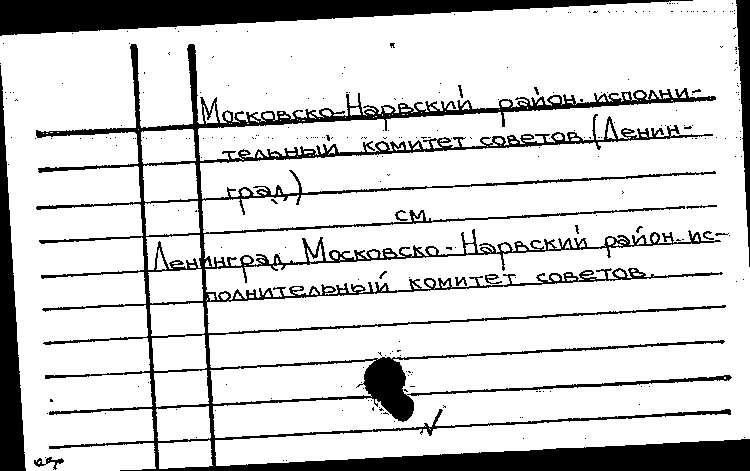 Московско-Нарвский район. исполни-
тельный комитет советов (Ленин-
град)
см.
Ленинград. Московско-Нарвский район. ис-
полнительный комитет советов.